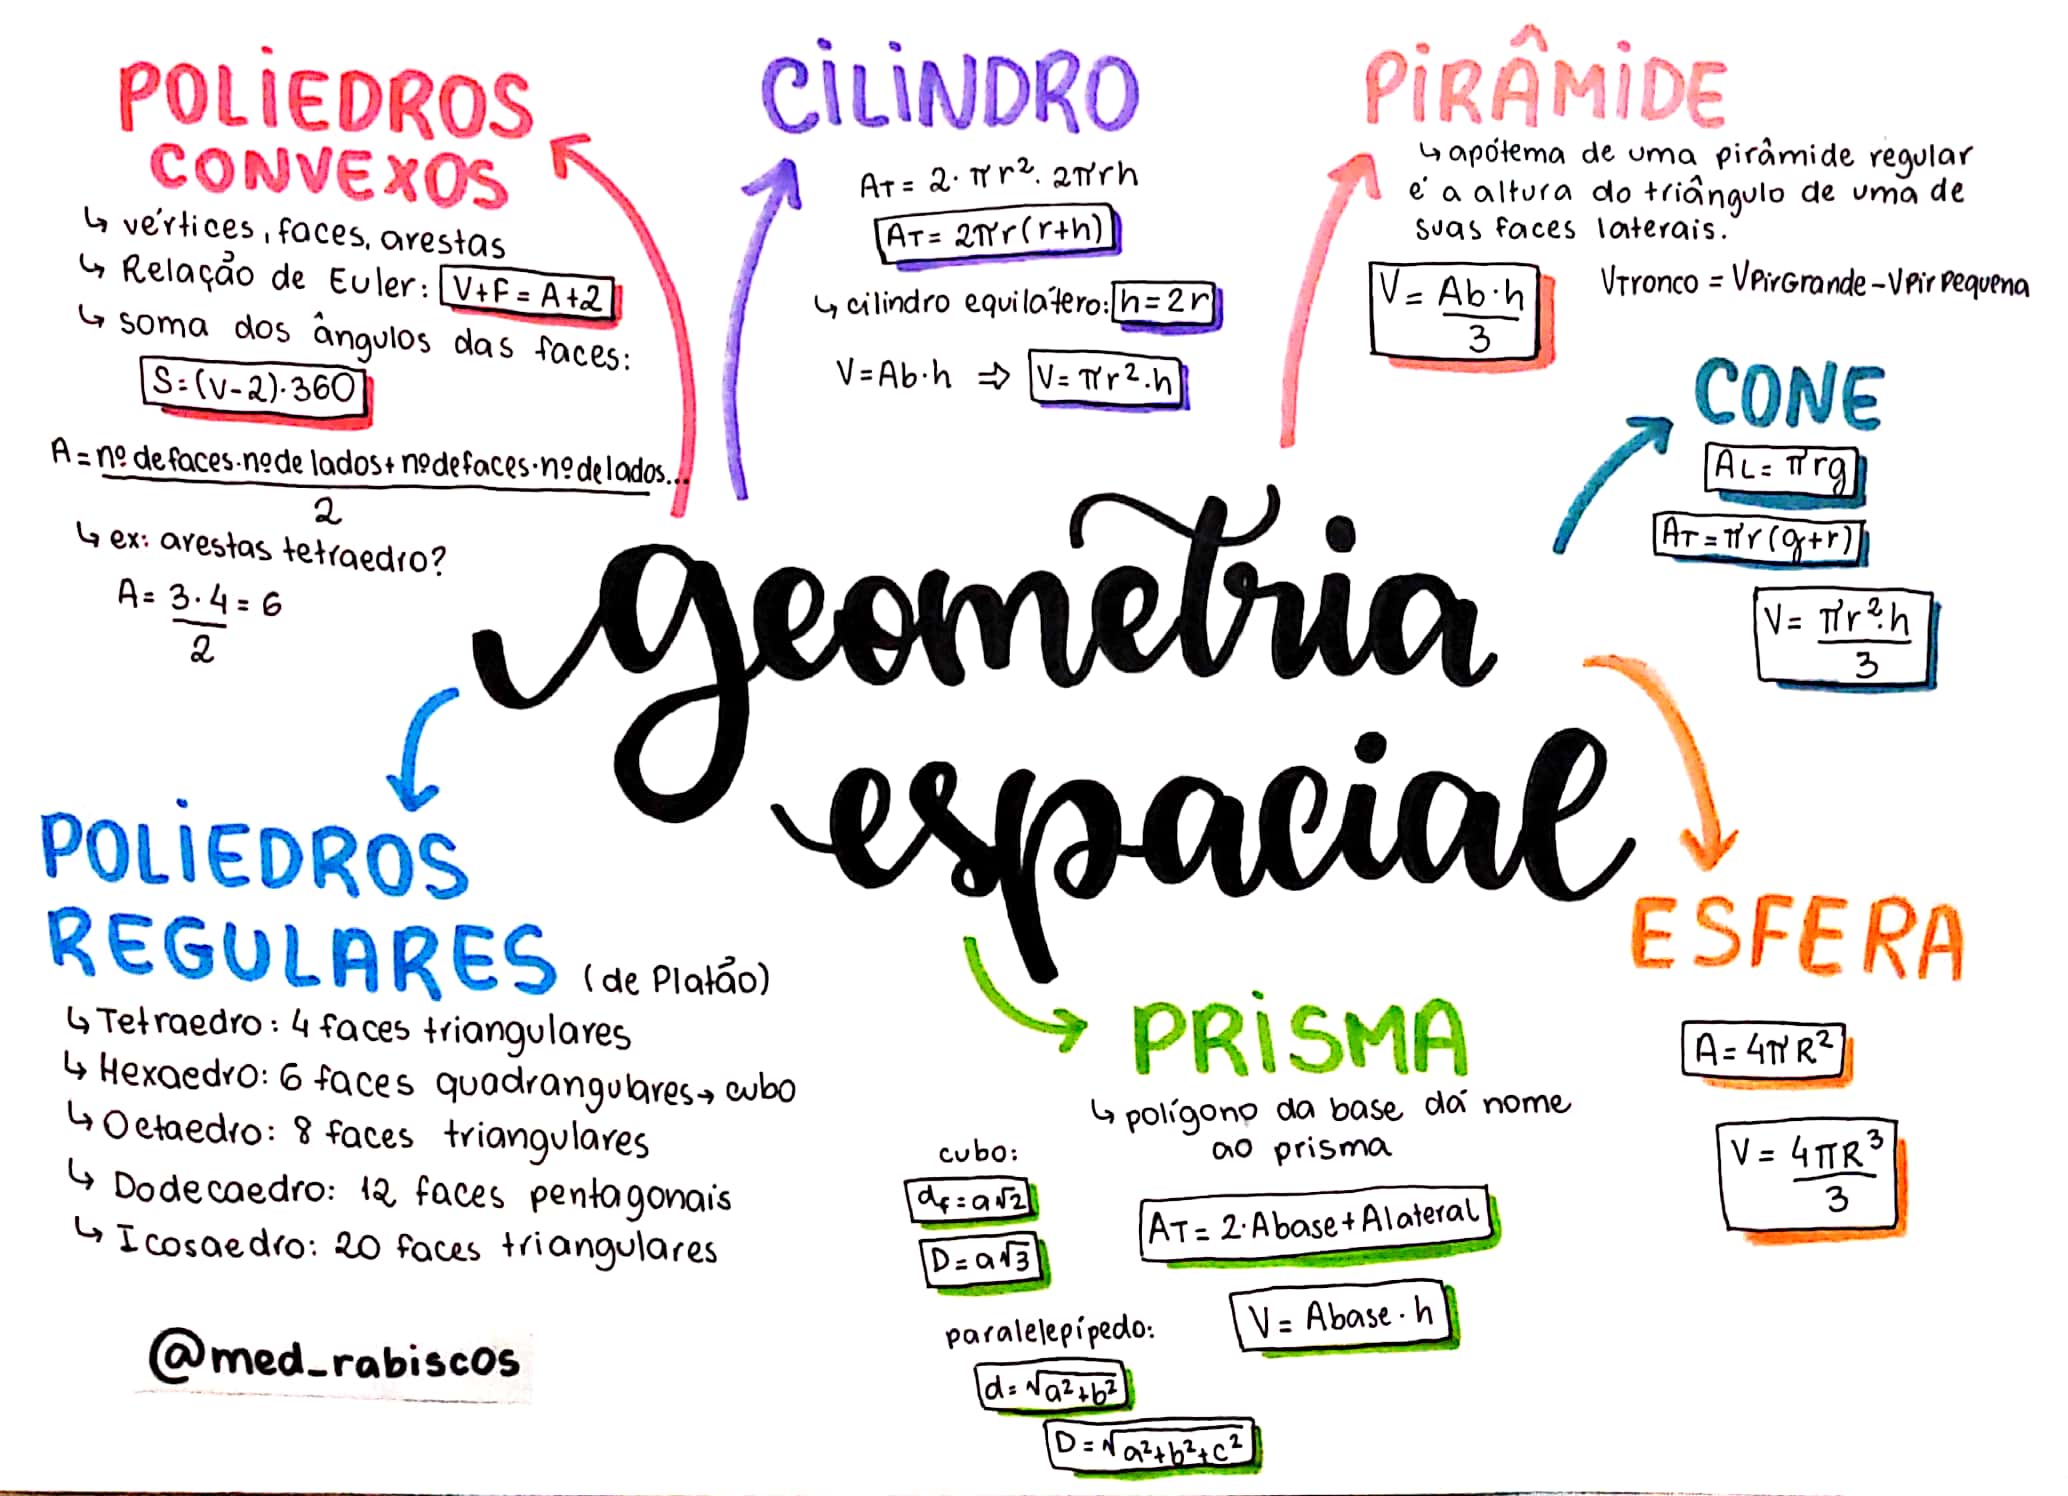 POLIEDROS
CONVEXOS
↳ vértices, faces, arestas
↳ Relação de Euler: V+F = A+2
↳ soma dos ângulos das faces:
S=(v-2)·360
A = nº de faces·nº de lados + nº de faces·nº de lados...
2
↳ ex: arestas tetraedro?
A = 3·4 = 6
2
CILINDRO
AT = 2·πr²·2πrh
AT = 2πr(r+h)
↳ cilindro equilátero: h=2r
V=Ab·h ⇒ V=πr²·h
PIRÂMIDE
↳ apótema de uma pirâmide regular
é a altura do triângulo de uma de
suas faces laterais.
V = Ab·h
3
VTronco = VPirGrande - VPirPequena
CONE
AL = πrg
AT = πr(g+r)
V = πr²·h
3
geometria
espacial
POLIEDROS
REGULARES (de Platão)
↳ Tetraedro: 4 faces triangulares
↳ Hexaedro: 6 faces quadrangulares → cubo
↳ Octaedro: 8 faces triangulares
↳ Dodecaedro: 12 faces pentagonais
↳ Icosaedro: 20 faces triangulares
@med_rabiscos
PRISMA
↳ polígono da base dá nome
ao prisma
cubo:
df = a√2
D = a√3
AT = 2·Abase + Alateral
V = Abase·h
paralelepípedo:
d = √a²+b²
D = √a²+b²+c²
ESFERA
A = 4πR²
V = 4πR³
3